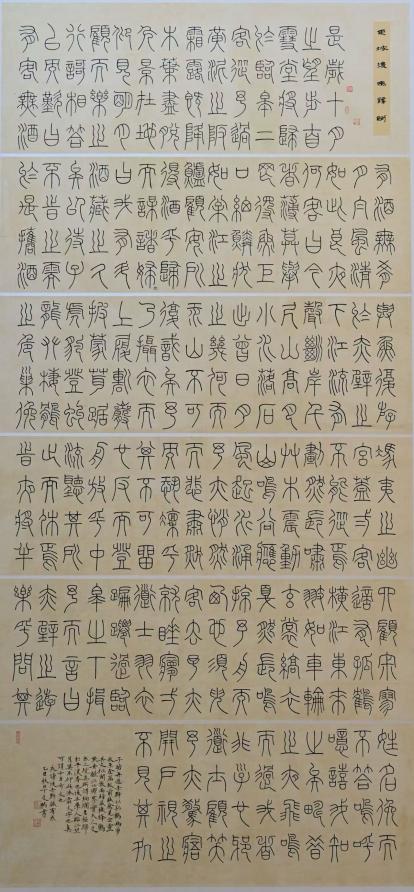 東坡後赤壁賦
是歲十月
之望步自
雪堂將歸
於臨皋二
客從予過
霜露既降
木葉盡脫
人景在地
仰見明月
顧而樂之
行謌相答
已而歎曰
有客無酒
有酒無肴
月白風清
如此良夜
何客曰今
者薄莫舉
网得魚巨
口細鱗狀
如松江之
鱸顧安所
得酒乎歸
而謀諸婦
曰我有斗
酒藏之久
矣以待子
不時之需
於是攜酒
與魚復游
於赤壁之
下江流有
聲斷岸千
尺山高月
小水落石
出曾日月
之幾何而
江山不可
復識矣予
乃攝衣而
上履巉巖
披蒙茸踞
虎豹登虬
龍攀棲鶻
之危巢俛
馮夷之幽
宮蓋二客
不能從焉
劃然長嘯
草木震動
山鳴谷應
風起水涌
予亦悄然
而悲肅然
而恐凜乎
其不可留
也反而登
舟放乎中
流聽其所
止而休焉
時夜將半
四顧寂寥
適有孤鶴
橫江東來
翅如車輪
玄裳縞衣
戛然長鳴
掠予舟而
西也須臾
客去予亦
就睡夢一
道士羽衣
蹁躚過臨
皋之下揖
予而言曰
赤壁之遊
樂乎問其
姓名俛而
不答嗚呼
噫嘻我知
之矣疇昔
之夜飛鳴
而過我者
非子也邪
道士顧笑
予亦驚寤
開戶視之
不見其処